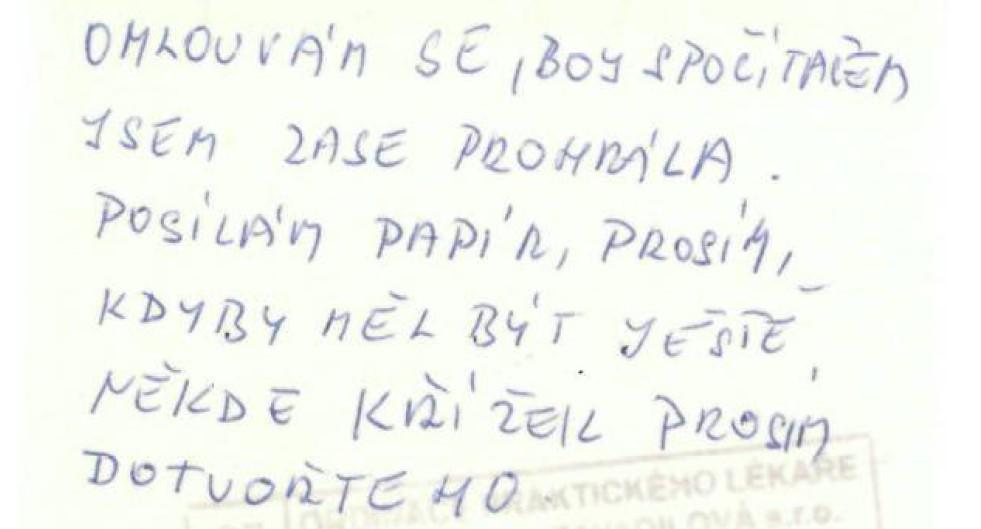 OMLOUVÁM SE, BOJ S POČÍTAČEM
JSEM ZASE PROHRÁLA.
POSÍLÁM PAPÍR, PROSÍM,
KDYBY MĚL BÝT JEŠTĚ
NĚKDE KŘÍŽEK PROSÍM
DOTVOŘTE HO.
ORDINACE PRAKTICKÉHO LÉKAŘE
s.r.o.